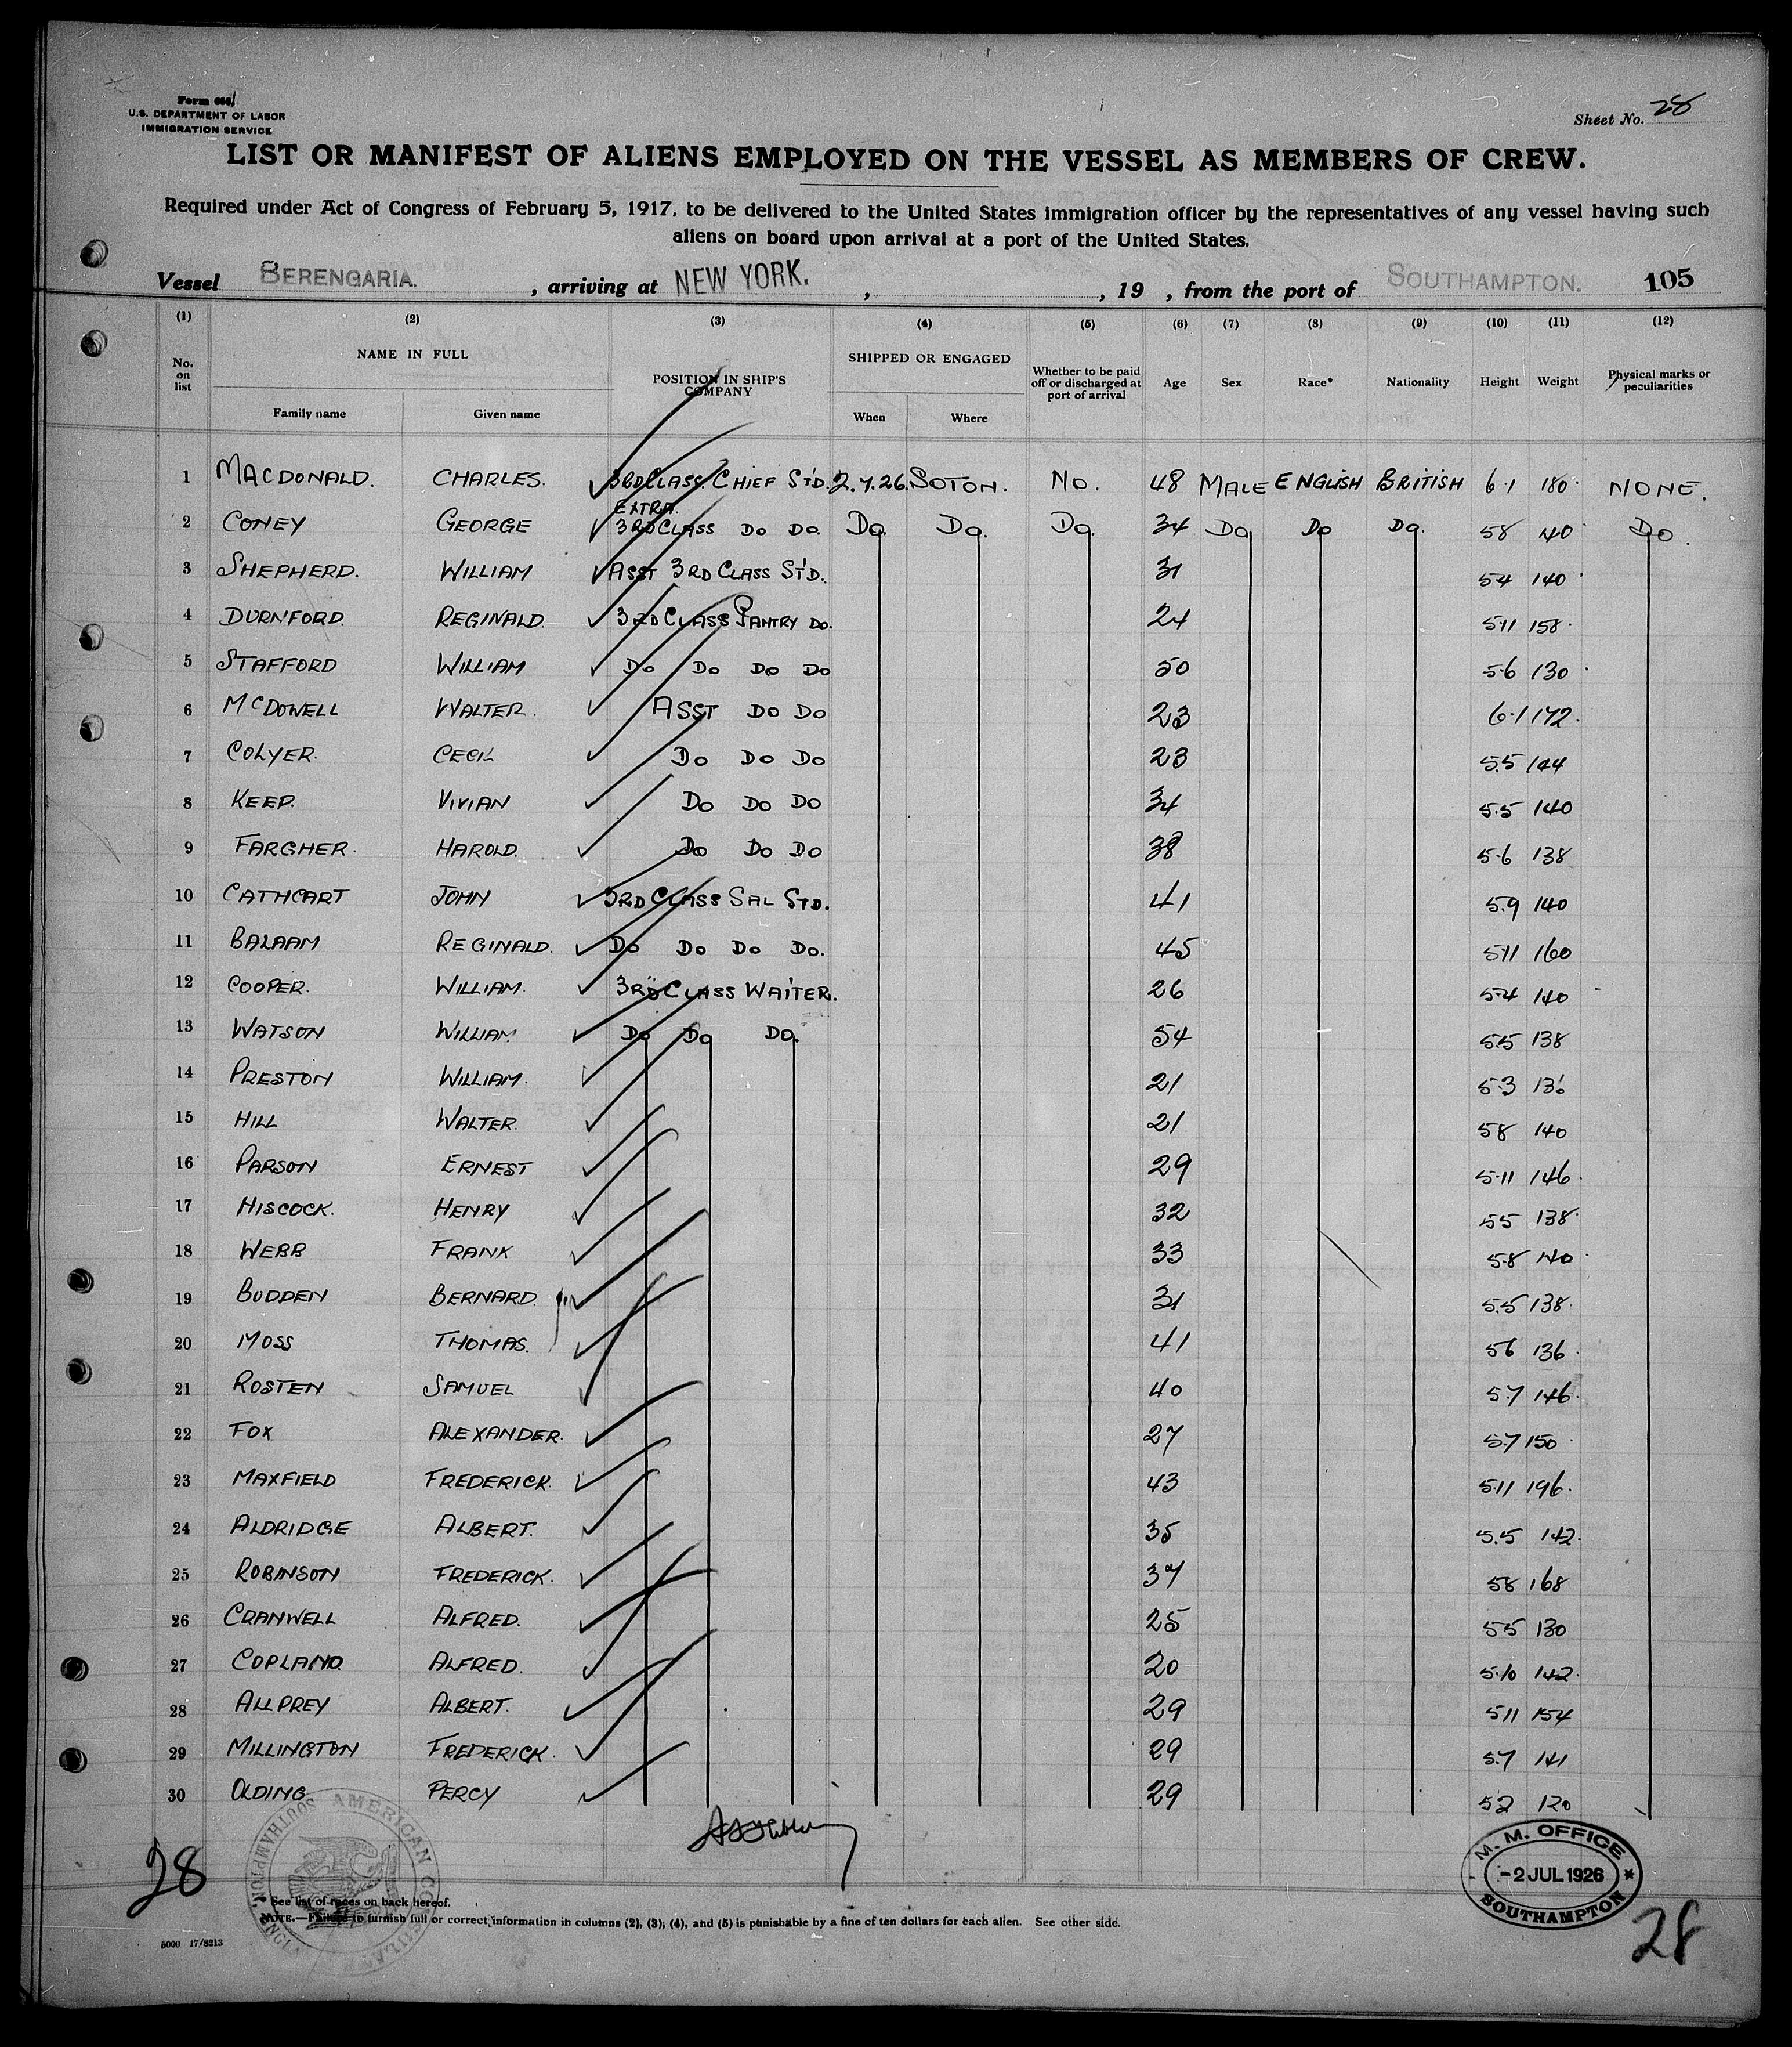 Form 686
U.S. DEPARTMENT OF LABOR
IMMIGRATION SERVICE
Sheet No. 28
LIST OR MANIFEST OF ALIENS EMPLOYED ON THE VESSEL AS MEMBERS OF CREW.
Required under Act of Congress of February 5, 1917, to be delivered to the United States immigration officer by the representatives of any vessel having such
aliens on board upon arrival at a port of the United States.
Vessel BERENGARIA. , arriving at NEW YORK. , , 19 , from the port of SOUTHAMPTON. 105
(1) (2) (3) (4) (5) (6) (7) (8) (9) (10) (11) (12)
No. on list NAME IN FULL Family name Given name POSITION IN SHIP'S COMPANY SHIPPED OR ENGAGED When Where Whether to be paid off or discharged at port of arrival Age Sex Race* Nationality Height Weight Physical marks or peculiarities
1 MACDONALD. CHARLES. 3RD CLASS. CHIEF STD. 2.7.26. SOTON. No. 48 MALE ENGLISH BRITISH 6.1 180. NONE.
2 CONEY GEORGE EXTRA. 3RD CLASS Do Do. Do. Do. Do. 34 Do Do Do. 58 140 Do.
3 SHEPHERD. WILLIAM ASST 3RD CLASS STD. 31 54 140
4 DURNFORD. REGINALD. 3RD CLASS PANTRY Do. 24 5.11 158.
5 STAFFORD WILLIAM Do Do Do Do 50 5.6 130
6 McDOWELL WALTER. ASST Do Do 23 6.1 172.
7 COLYER. CECIL Do Do Do 23 5.5 144
8 KEEP. VIVIAN Do Do Do 34 5.5 140
9 FARGHER. HAROLD. Do Do Do 38 5.6 138
10 CATHCART JOHN 3RD CLASS SAL STD. 41 5.9 140
11 BALAAM REGINALD. Do Do Do Do. 45 5.11 160
12 COOPER. WILLIAM. 3RD CLASS WAITER. 26 5.4 140
13 WATSON WILLIAM. Do Do Do. 54 5.5 138
14 PRESTON WILLIAM. 21 5.3 136
15 HILL WALTER. 21 58 140
16 PARSON ERNEST 29 5.11 146.
17 HISCOCK. HENRY 32 55 138.
18 WEBB FRANK 33 5.8 140
19 BUDDEN BERNARD. 31 5.5 138.
20 MOSS THOMAS. 41 56 136.
21 ROSTEN SAMUEL 40 5.7 146.
22 FOX ALEXANDER. 27 5.7 150
23 MAXFIELD FREDERICK. 43 5.11 196.
24 ALDRIDGE ALBERT. 35 5.5 142.
25 ROBINSON FREDERICK. 37 58 168
26 CRANWELL ALFRED. 25 55 130
27 COPLAND. ALFRED. 20 5.10 142.
28 ALLPREY ALBERT. 29 5.11 154
29 MILLINGTON FREDERICK. 29 5.7 141
30 OLDING PERCY 29 52 120
28
AMERICAN CONSULATE SOUTHAMPTON, ENGLAND
M. M. OFFICE
-2 JUL 1926 *
SOUTHAMPTON
* See list of races on back hereof.
NOTE.—Failure to furnish full or correct information in columns (2), (3), (4), and (5) is punishable by a fine of ten dollars for each alien. See other side.
5000 17/8213
28